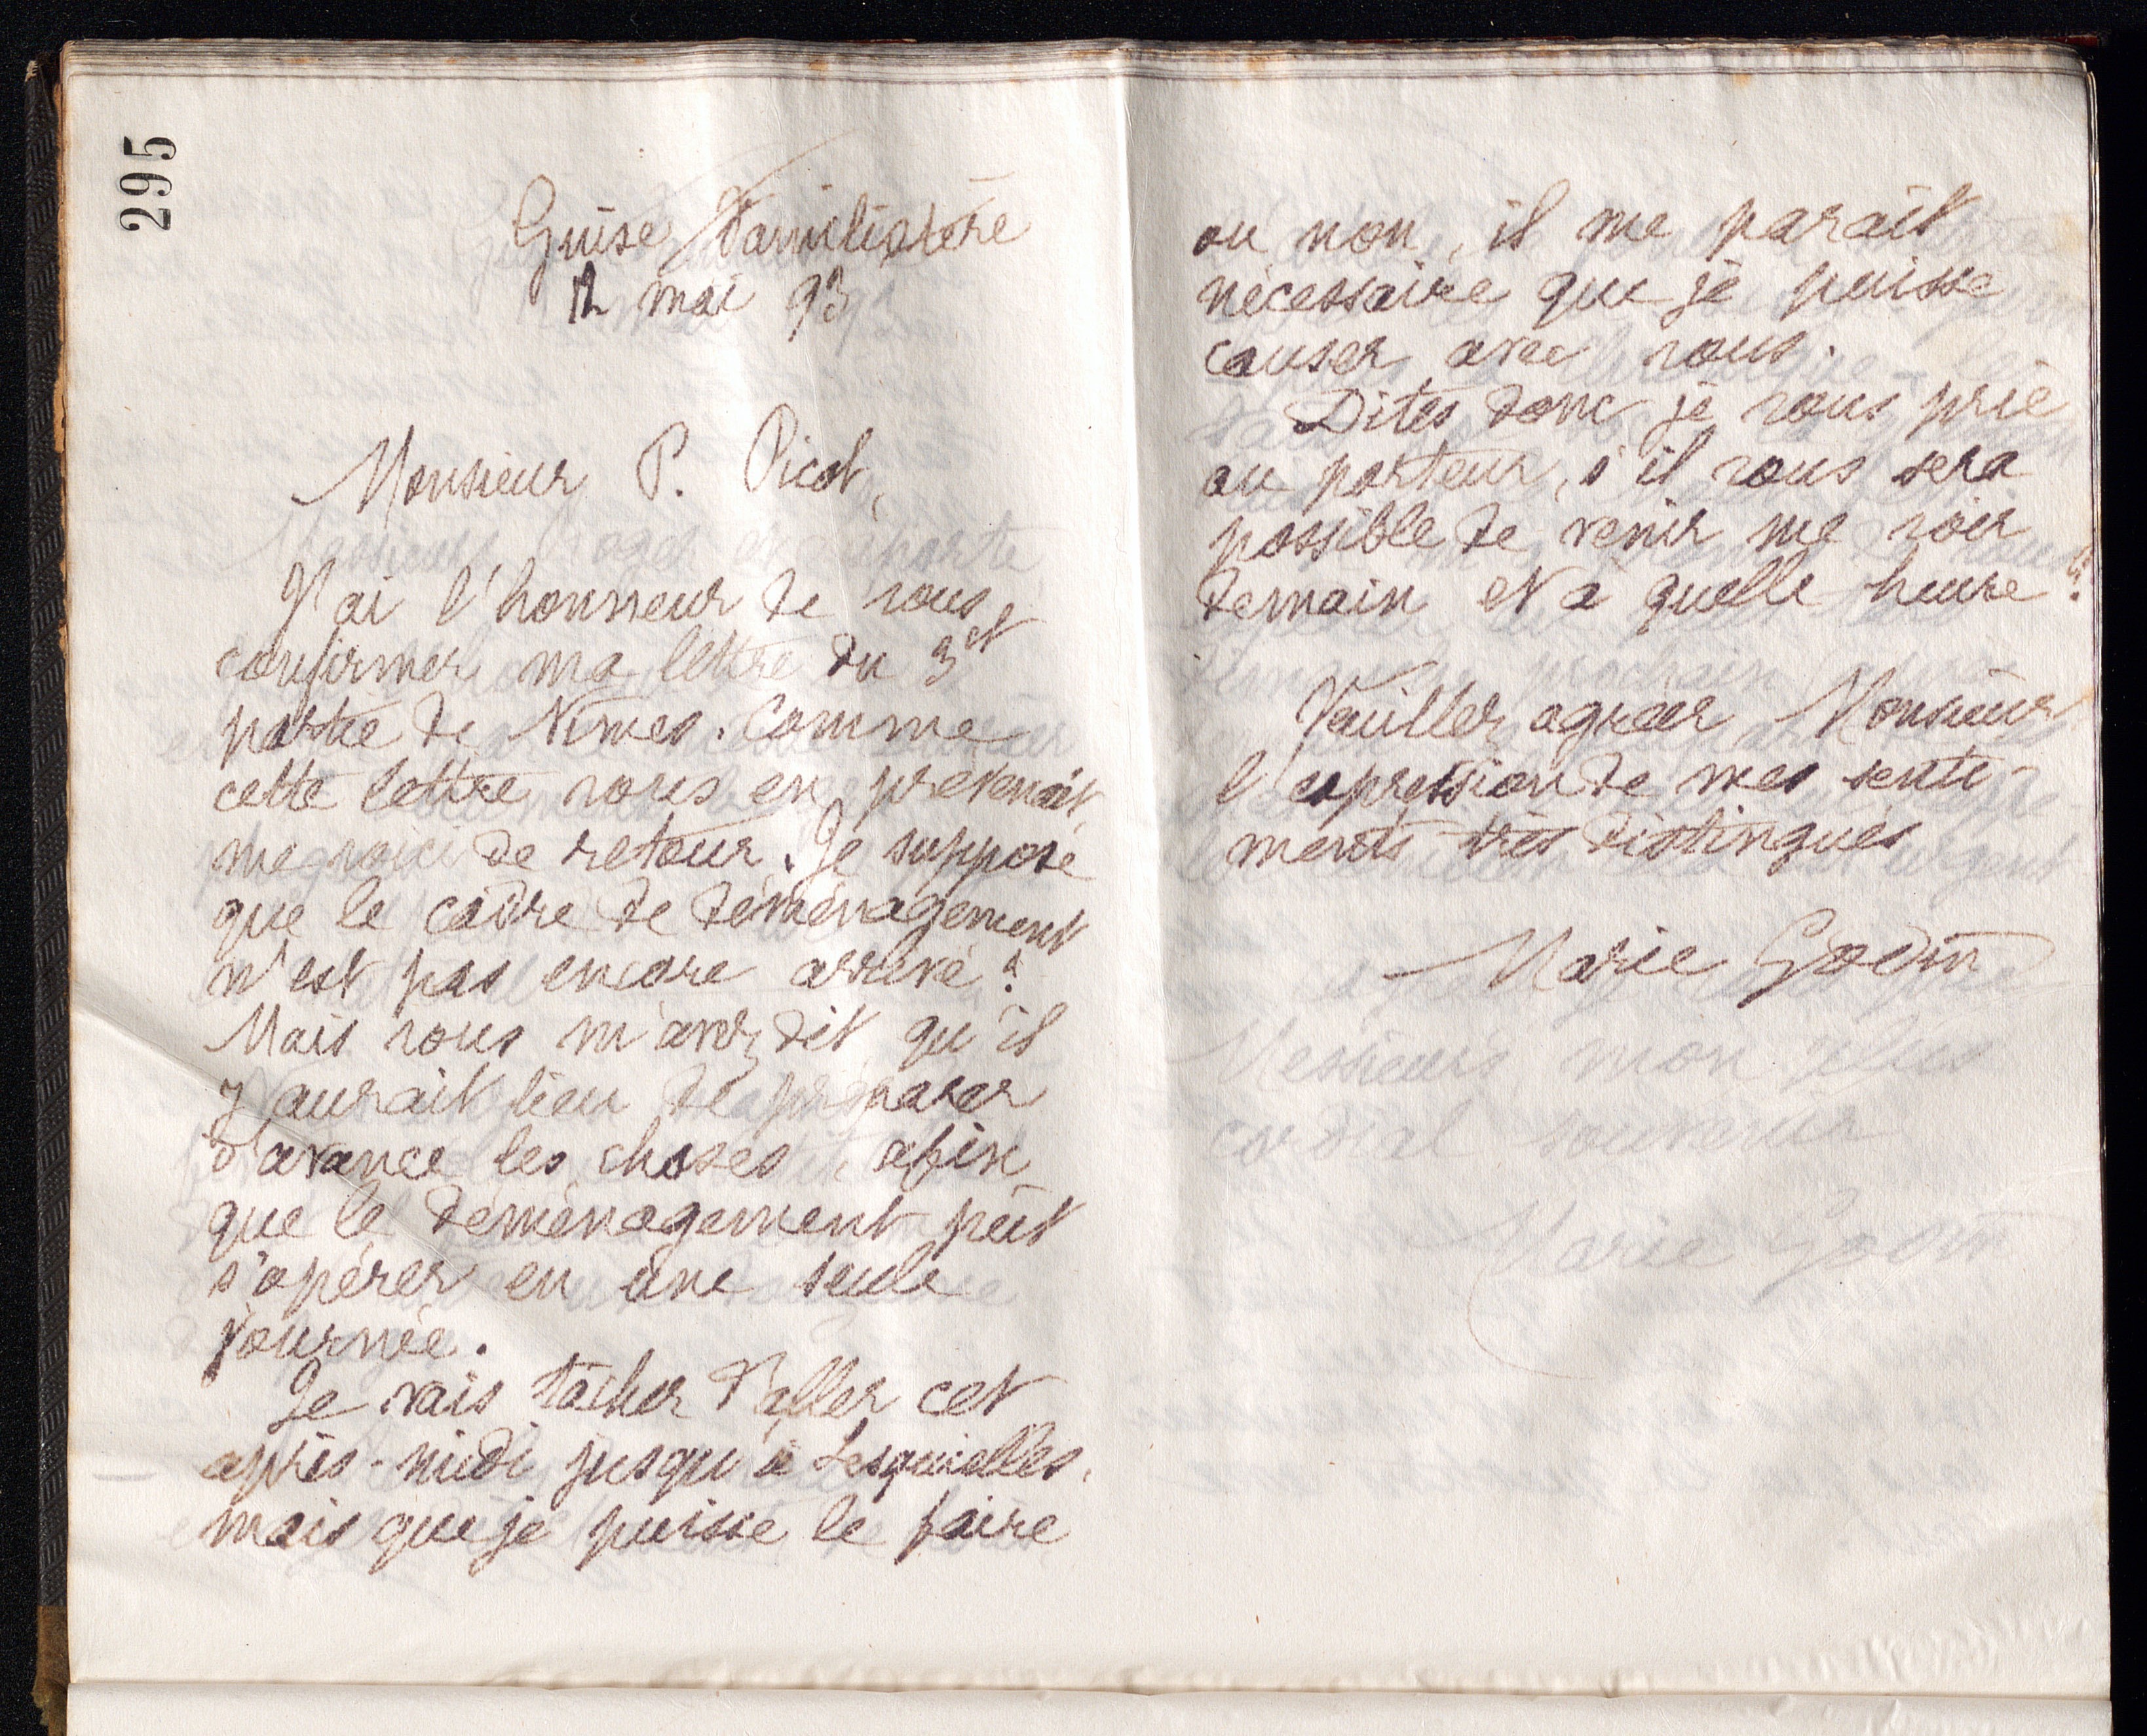 295
Guise Familistère
12 mai 93
Monsieur P. Picot,
J'ai l'honneur de vous
confirmer ma lettre du 3 ct
partie de Nîmes. Comme
cette lettre vous en prévenait,
me voici de retour. Je suppose
que le cadre de déménagement
n'est pas encore arrivé ?
Mais vous m'avez dit qu'il
y aurait lieu de préparer
d'avance les choses, afin
que le déménagement pût
s'opérer en une seule
journée.
Je vais tâcher d'aller cet
après-midi jusqu'à Lesquielles,
mais que je puisse le faire
ou non, il me paraît
nécessaire que je puisse
causer avec vous.
Dites donc je vous prie
au porteur, s'il vous sera
possible de venir me voir
demain et à quelle heure ?
Veuillez agréer Monsieur
l'expression de mes senti-
ments très distingués
Marie Godin
Messieurs mon plus
cordial souvenir
Marie Godin